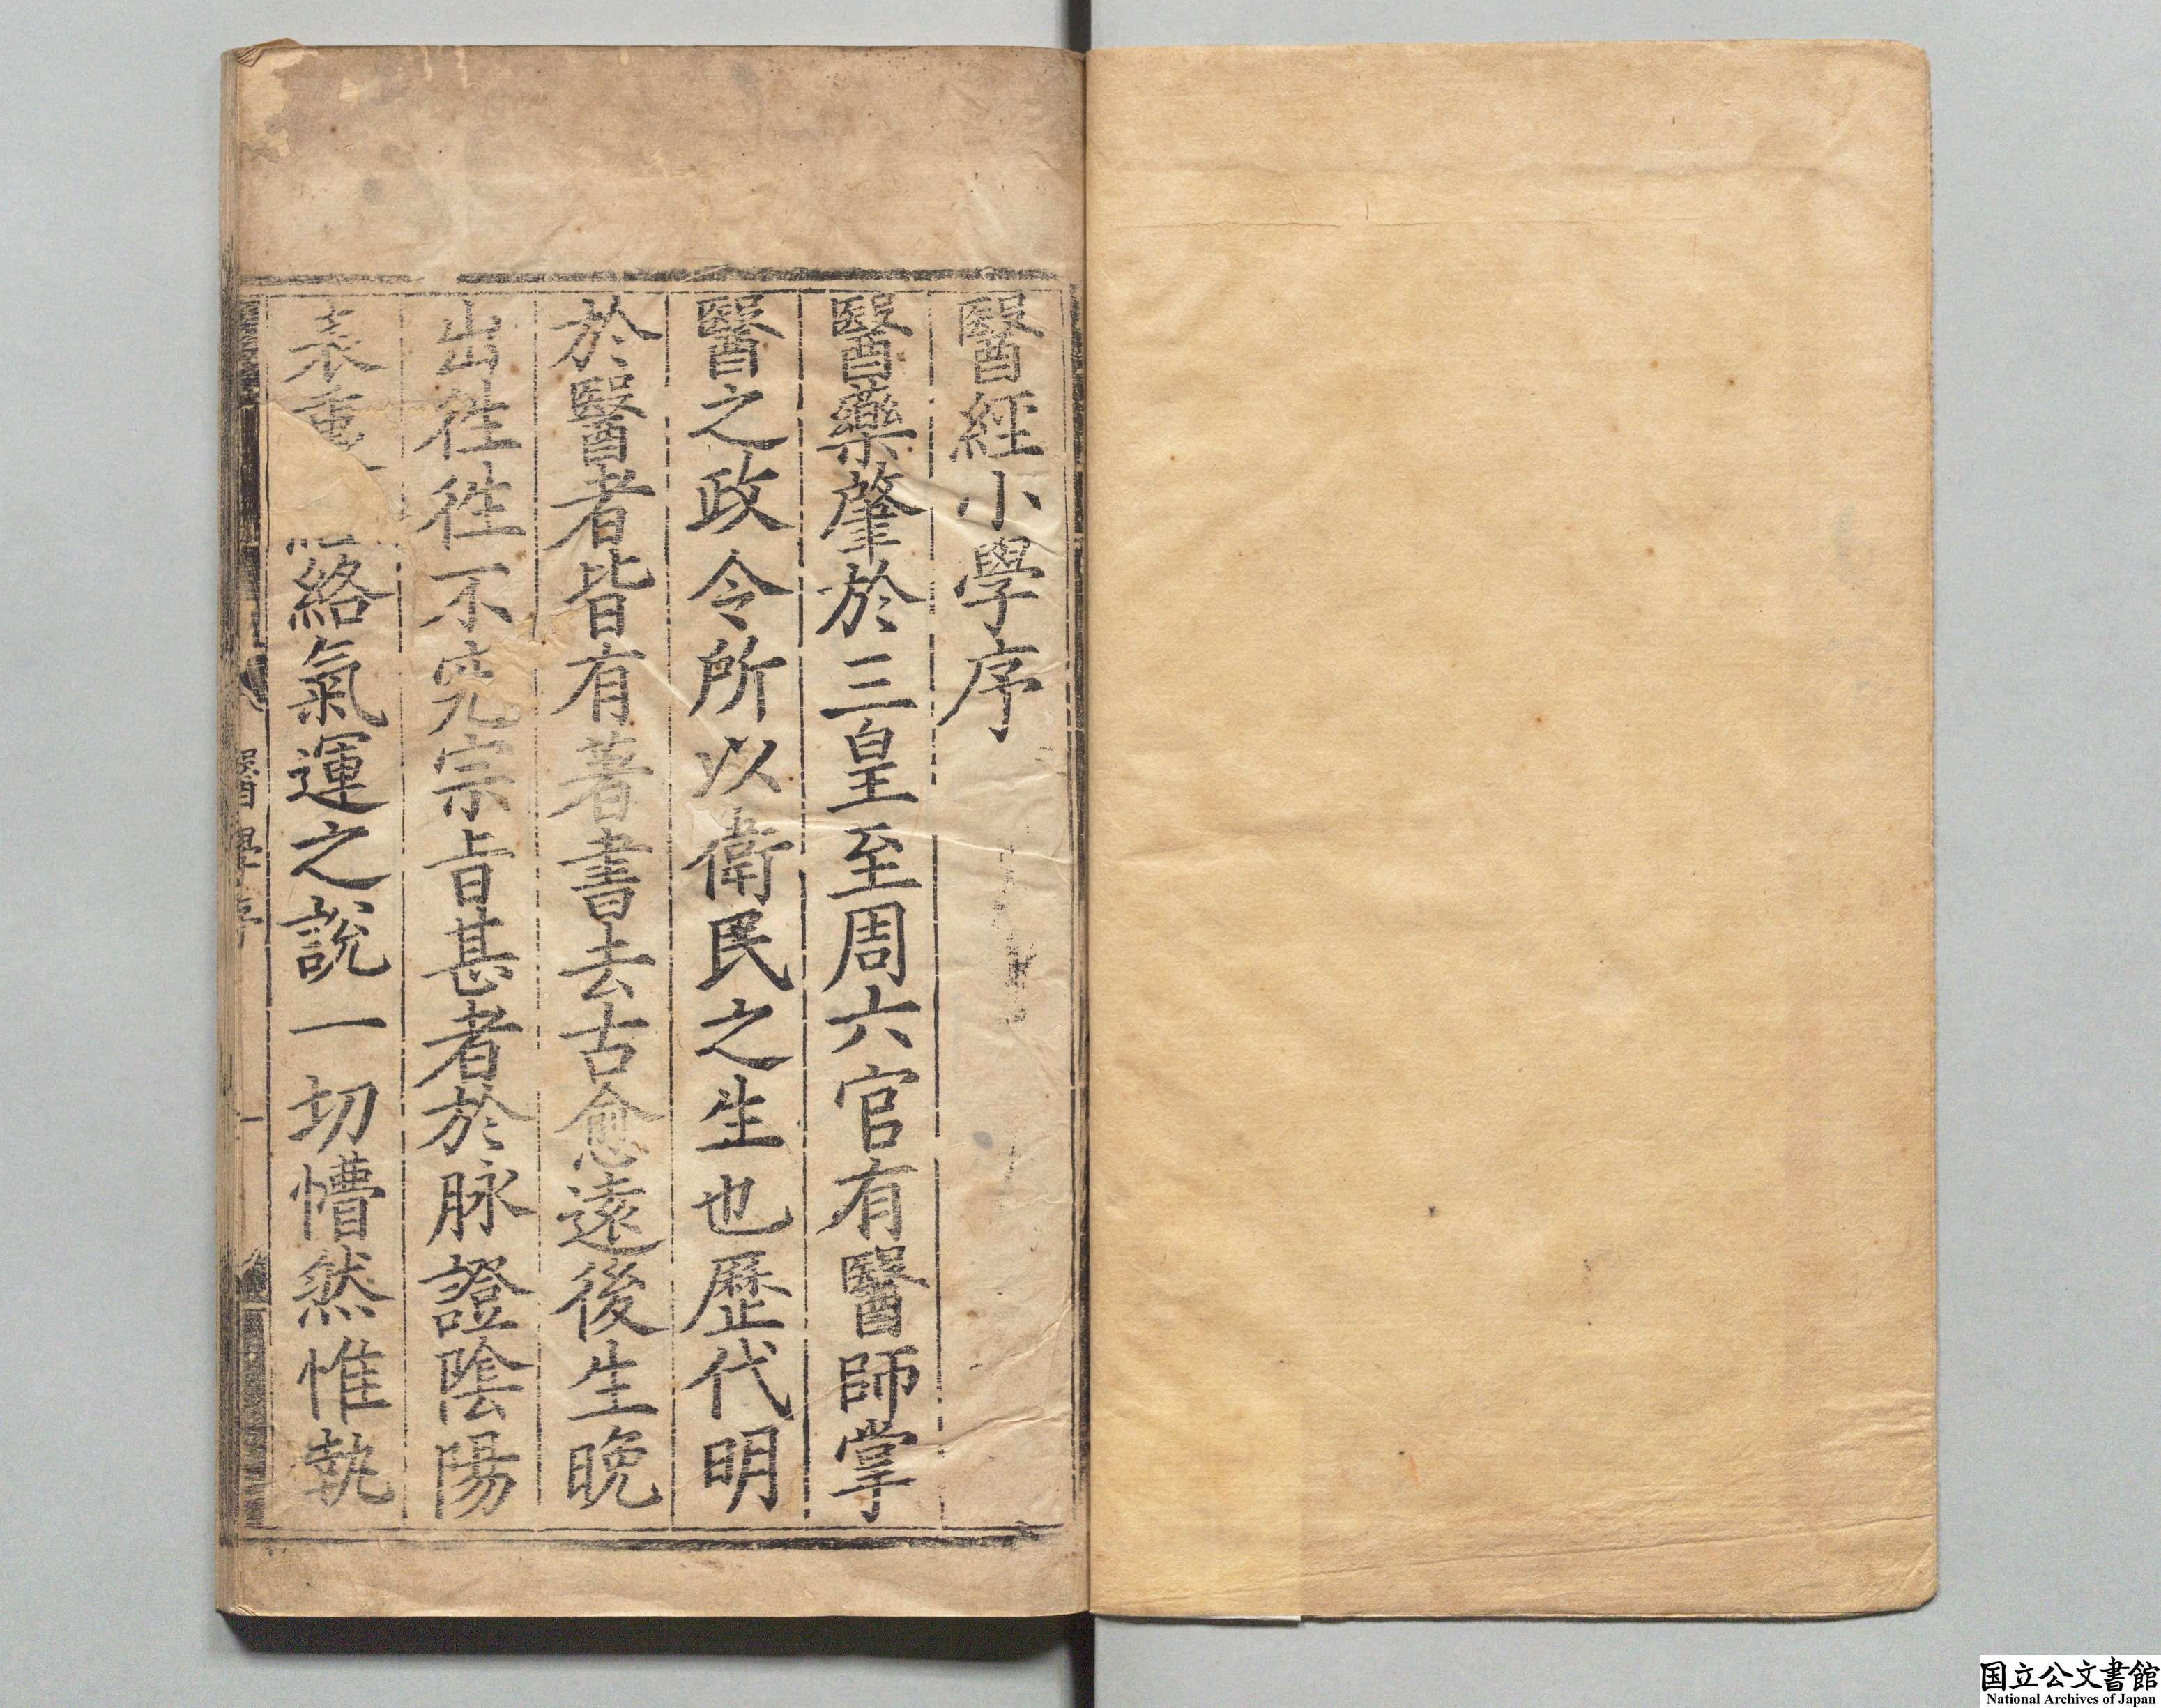 醫經小學序
醫藥肇於三皇至周六官有醫師掌
醫之政令所以衛民之生也歷代明
於醫者皆有著書去古愈遠後生晚
出徃徃不究宗旨甚者於脉證陰陽
表 絡氣運之說一切懵然惟執
醫學序
一
国立公文書館
National Archives of Japan